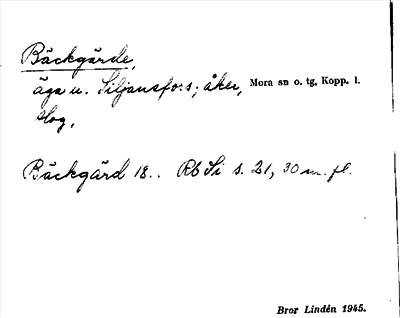 Bäckgärde,
äga u. Siljansfors; åker, Mora sn o. tg, Kopp. l.
slog,
Bäckgärd 18.. Rb Si s. 21, 30 m. fl.
Bror Lindén 1945.